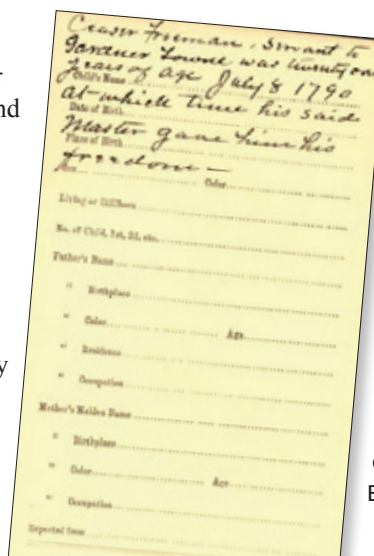 Ceasar Freeman, Servant to
Gardner Towne was twenty one
years of age July 8 1790
Child's Name
at which time his said
Date of Birth
Master gave him his
Place of Birth
freedom —
Sex Color
Living or Stillborn
No. of Child, 1st, 2d, etc.
Father's Name
" Birthplace
" Color Age
" Residence
" Occupation
Mother's Maiden Name
" Birthplace
" Color Age
" Occupation
Reported from
nd
y
E